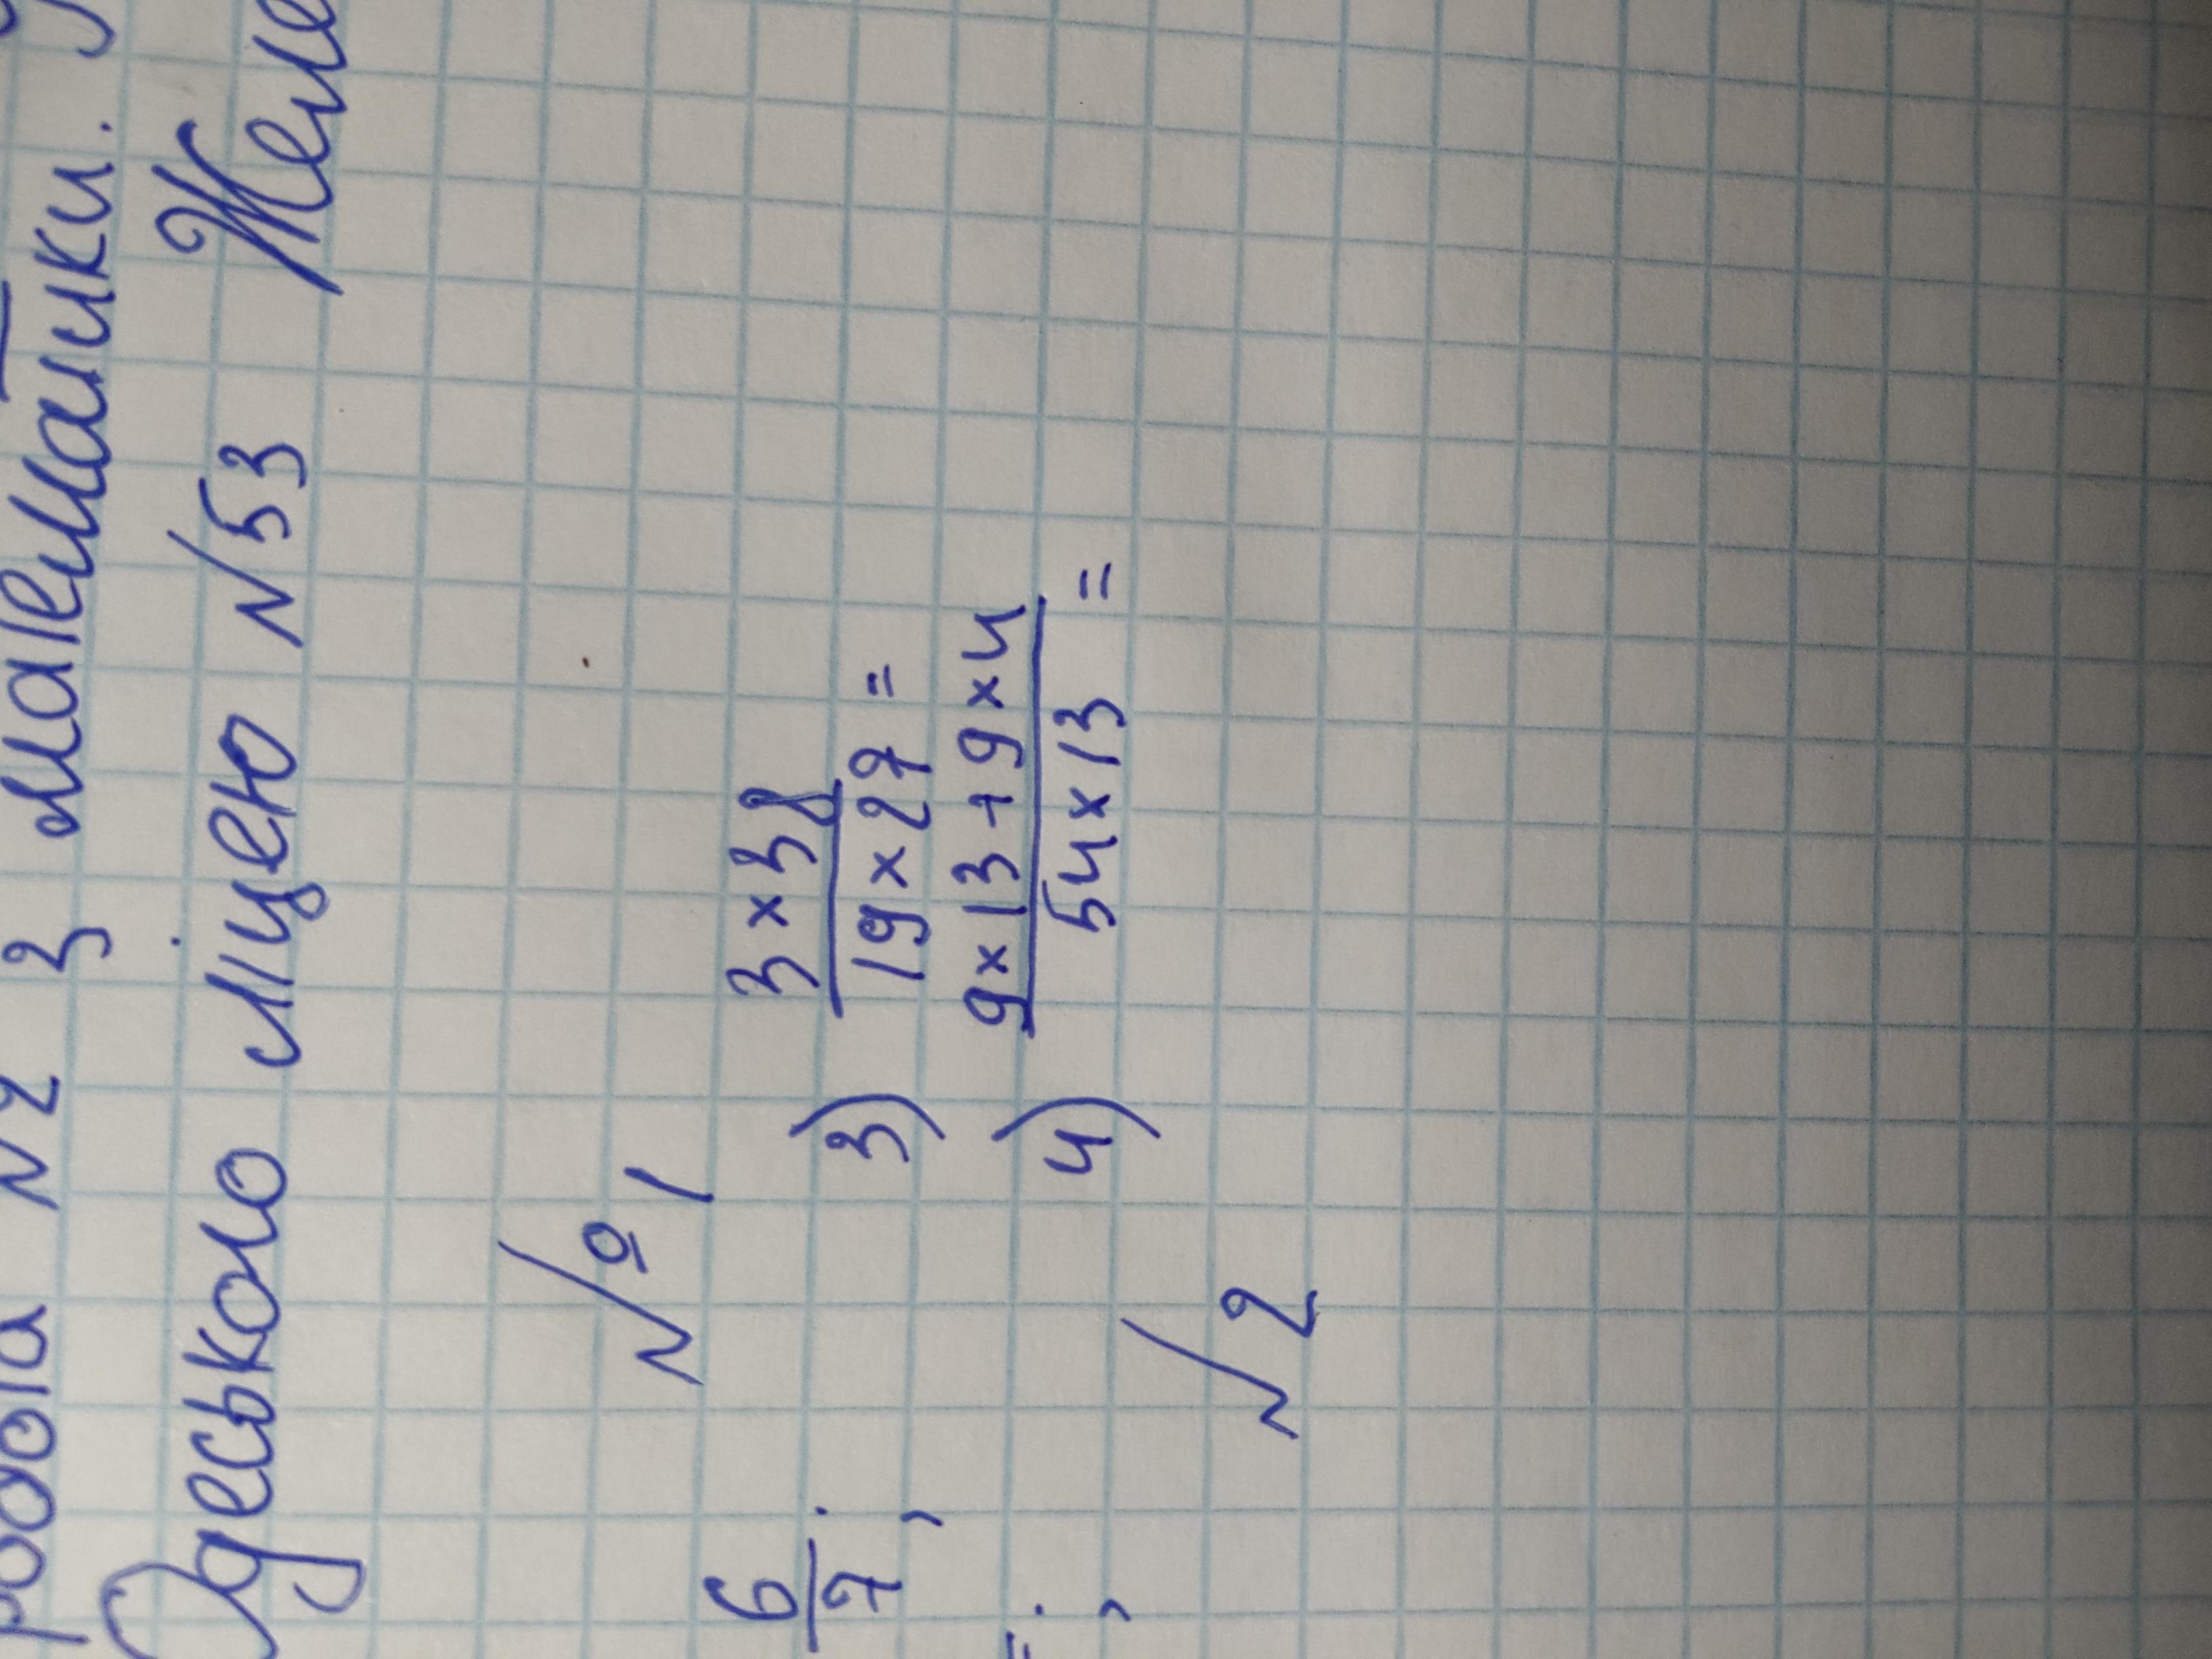 робота №2 з математики.
Одеського ліцею №53
№ 1
6/7; 3) 3×38/19×27 =
4) 9×13+9×4/54×13 =
№2